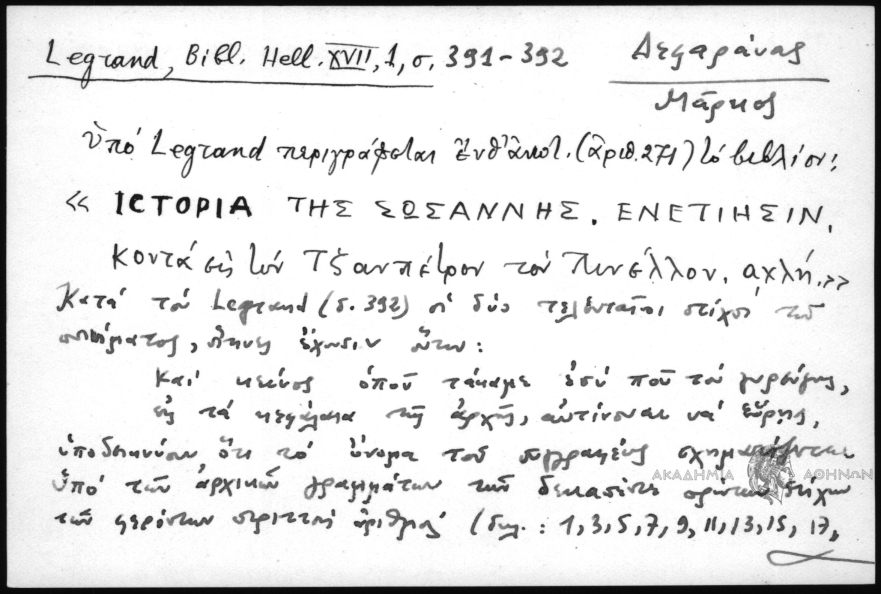 Legrand, Bibl. Hell. XVII, 1, σ. 391-392
Δεφαράνας
Μάρκος
Ὑπό Legrand περιγράφεται ἐνθ' ἀνωτ. (ἀριθ. 271) τό βιβλίον:
« ΙCΤΟΡΙΑ ΤΗΣ ΣΩΣΑΝΝΗΣ. ΕΝΕΤΙΗΣΙΝ,
κοντά εἰς τόν Τζανπέτρον τον Πινέλλον, αχλή.»
Κατά τόν Legrand (σ. 392) οἱ δύο τελευταῖοι στίχοι τοῦ
ποιήματος, ἔχουσιν οὕτω:
Καί κεῖνος ὁποῦ τάκαμε ἐσύ ποῦ τόν γυρεύγεις,
εἰς τά κεφάλαια τῆς ἀρχῆς, αὐτίνουνε νά εὕρῃς,
ὑποδεικνύουν ὅτι τό ὄνομα τοῦ συγγραφέως σχηματίζεται
ὑπό τῶν ἀρχικῶν γραμμάτων τῶν δεκαπέντε πρώτων στίχων
τῶν φερόντων περιττόν ἀριθμόν (δηλ.: 1, 3, 5, 7, 9, 11, 13, 15, 17,
ΑΚΑΔΗΜΙΑ ΑΘΗΝΩΝ